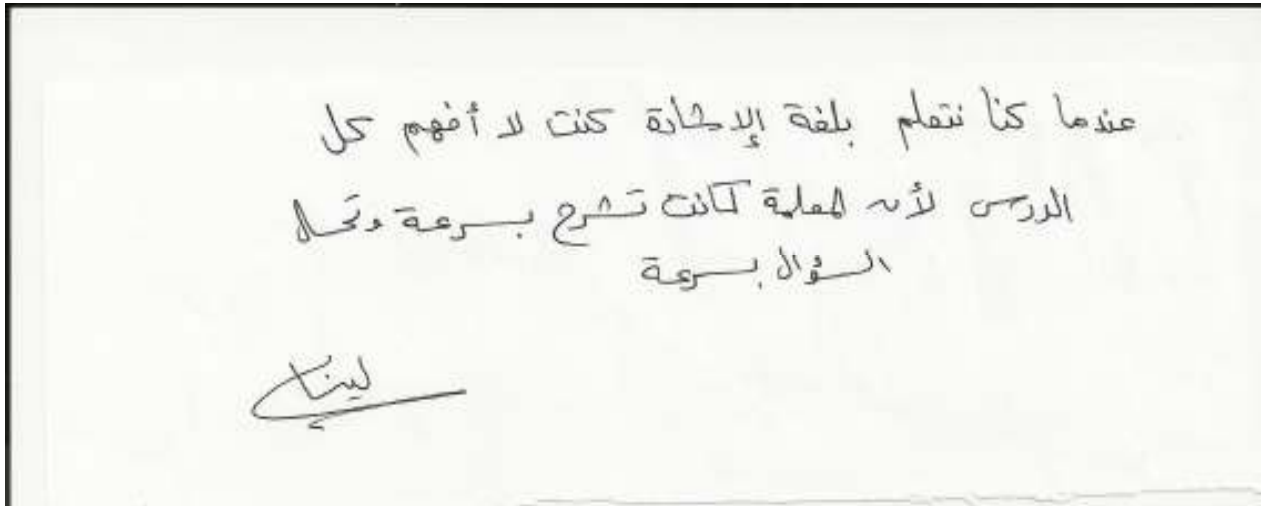 عندما كنا نتعلم بلغة الإشارة كنت لا أفهم كل
الدرس لأن المعلمة كانت تشرح بسرعة وتحل
السؤال بسرعة
لينا